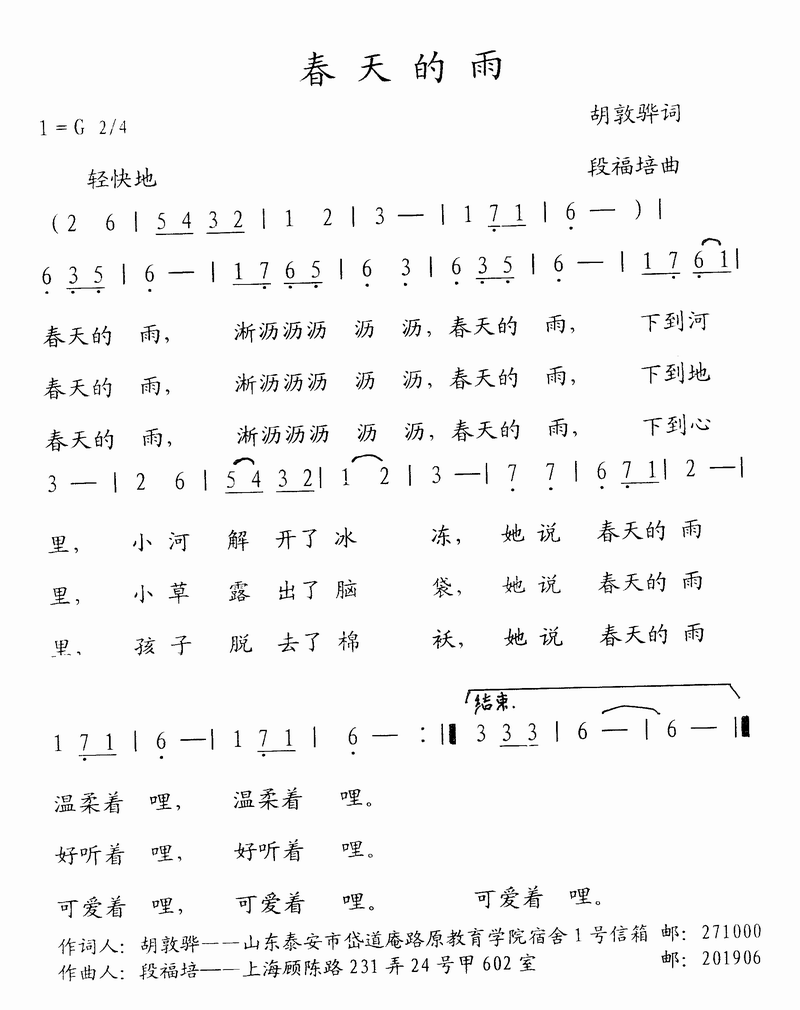 春天的雨
1=G 2/4
胡敦骅词
轻快地
段福培曲
(2 6 | 5 4 3 2 | 1 2 | 3 — | 1 7 1 | 6 — ) |
6 3 5 | 6 — | 1 7 6 5 | 6 3 | 6 3 5 | 6 — | 1 7 6 1 |
春天的 雨, 淅沥沥沥 沥 沥, 春天的 雨, 下到河
春天的 雨, 淅沥沥沥 沥 沥, 春天的 雨, 下到地
春天的 雨, 淅沥沥沥 沥 沥, 春天的 雨, 下到心
3 — | 2 6 | 5 4 3 2 | 1 2 | 3 — | 7 7 | 6 7 1 | 2 — |
里, 小河 解 开了冰 冻, 她说 春天的雨
里, 小草 露 出了脑 袋, 她说 春天的雨
里, 孩子 脱 去了棉 袄, 她说 春天的雨
结束.
1 7 1 | 6 — | 1 7 1 | 6 — :‖ 3 3 3 | 6 — | 6 — ‖
温柔着 哩, 温柔着 哩。
好听着 哩, 好听着 哩。
可爱着 哩, 可爱着 哩。 可爱着 哩。
作词人: 胡敦骅——山东泰安市岱道庵路原教育学院宿舍1号信箱 邮: 271000
作曲人: 段福培——上海顾陈路231弄24号甲602室 邮: 201906